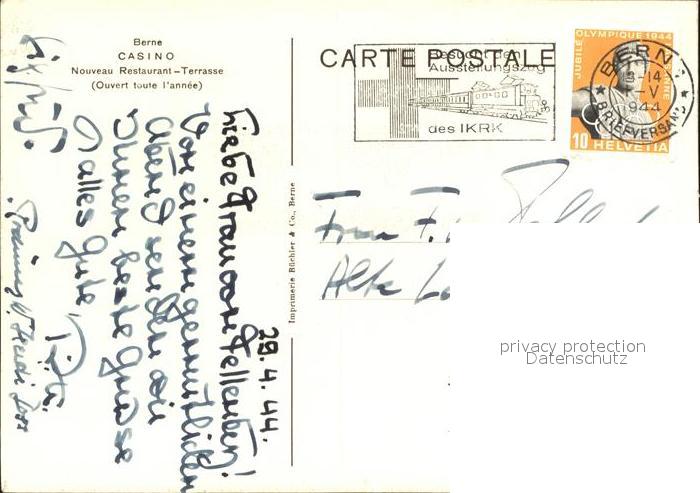 Berne
CASINO
Nouveau Restaurant-Terrasse
(Ouvert toute l'année)
CARTE POSTALE
Besucht den
Ausstellungszug
des IKRK
JUBILÉ OLYMPIQUE 1944
10 HELVETIA
BERN
13-14
V
1944
BRIEFVERSAND
Imprimerie Büchler & Co., Berne
29.4.44.
Liebe Frau von Fellenberg!
Von einem gemütlichen
Abend senden wir
Ihnen beste Grüsse
& alles Gute
Frau F.
Alte
privacy protection
Datenschutz